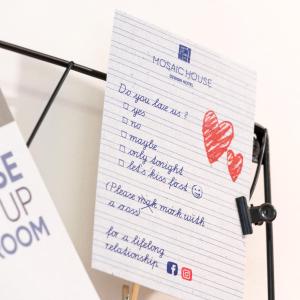 MOSAIC HOUSE
DESIGN HOTEL
Do you love us?
yes
no
maybe
only tonight
let's kiss first
(Please mark with
a cross)
for a lifelong
relationship
SE
UP
ROOM